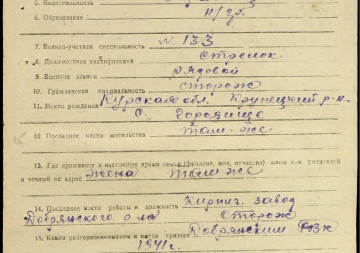 5. Национальность
6. Образование н/ср.
7. Военно-учетная специальность № 133
8. Должностная квалификация Стрелок
9. Военное звание рядовой
10. Гражданская специальность сторож
11. Место рождения Курская обл. Крупецкий р-н
с. Городище
12. Последнее место жительства там-же
13. Где проживает в настоящее время семья (фамилия, имя, отчество) жены или родителей
и точный их адрес жена там же
14. Последнее место работы и должность Кирпич. завод
Добрянского р-на Сторож
15. Каким райгорвоенкоматом и когда призван Добрянским РВК
1941 г.